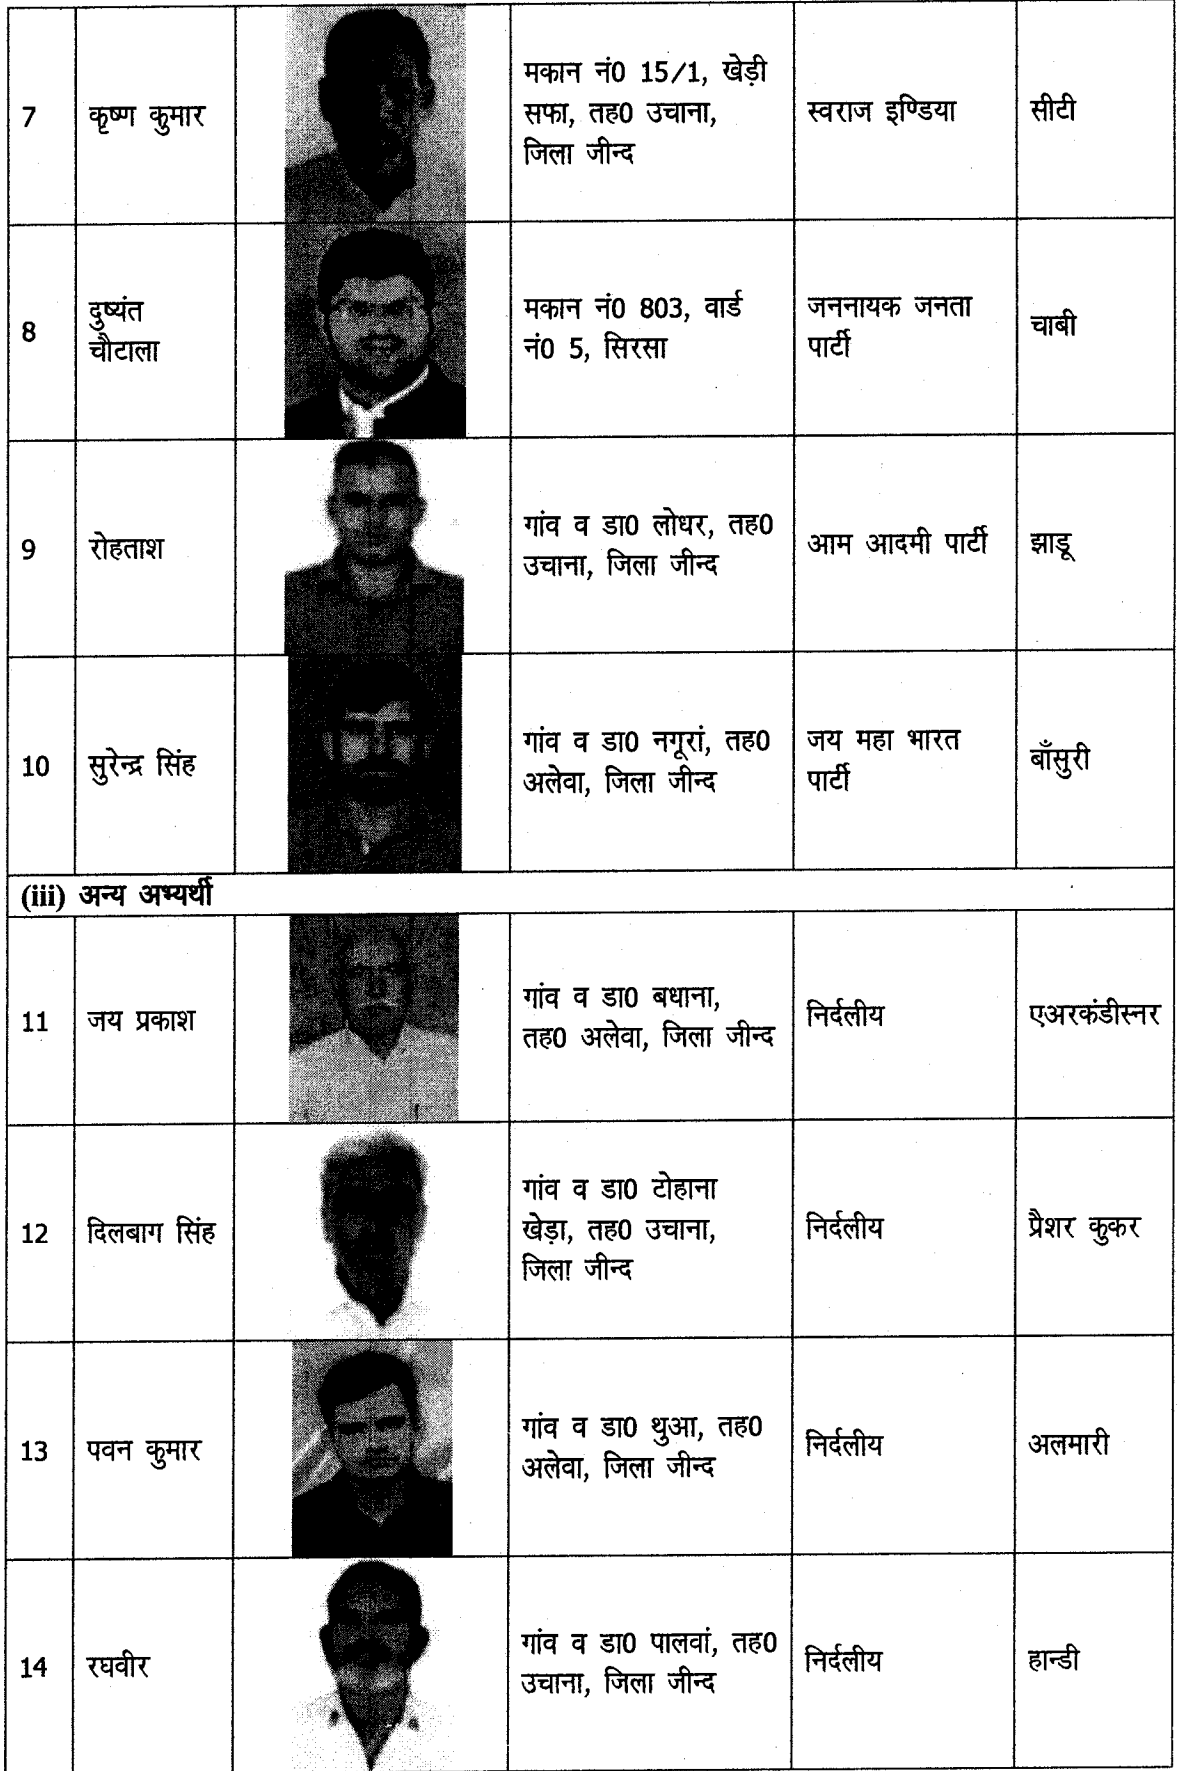 7
कृष्ण कुमार
मकान नं0 15/1, खेड़ी
सफा, तह0 उचाना,
जिला जीन्द
स्वराज इण्डिया
सीटी
8
दुष्यंत
चौटाला
मकान नं0 803, वार्ड
नं0 5, सिरसा
जननायक जनता
पार्टी
चाबी
9
रोहताश
गांव व डा0 लोधर, तह0
उचाना, जिला जीन्द
आम आदमी पार्टी
झाडू
10
सुरेन्द्र सिंह
गांव व डा0 नगूरां, तह0
अलेवा, जिला जीन्द
जय महा भारत
पार्टी
बाँसुरी
(iii) अन्य अभ्यर्थी
11
जय प्रकाश
गांव व डा0 बधाना,
तह0 अलेवा, जिला जीन्द
निर्दलीय
एअरकंडीस्नर
12
दिलबाग सिंह
गांव व डा0 टोहाना
खेड़ा, तह0 उचाना,
जिला जीन्द
निर्दलीय
प्रैशर कुकर
13
पवन कुमार
गांव व डा0 थुआ, तह0
अलेवा, जिला जीन्द
निर्दलीय
अलमारी
14
रघवीर
गांव व डा0 पालवां, तह0
उचाना, जिला जीन्द
निर्दलीय
हान्डी